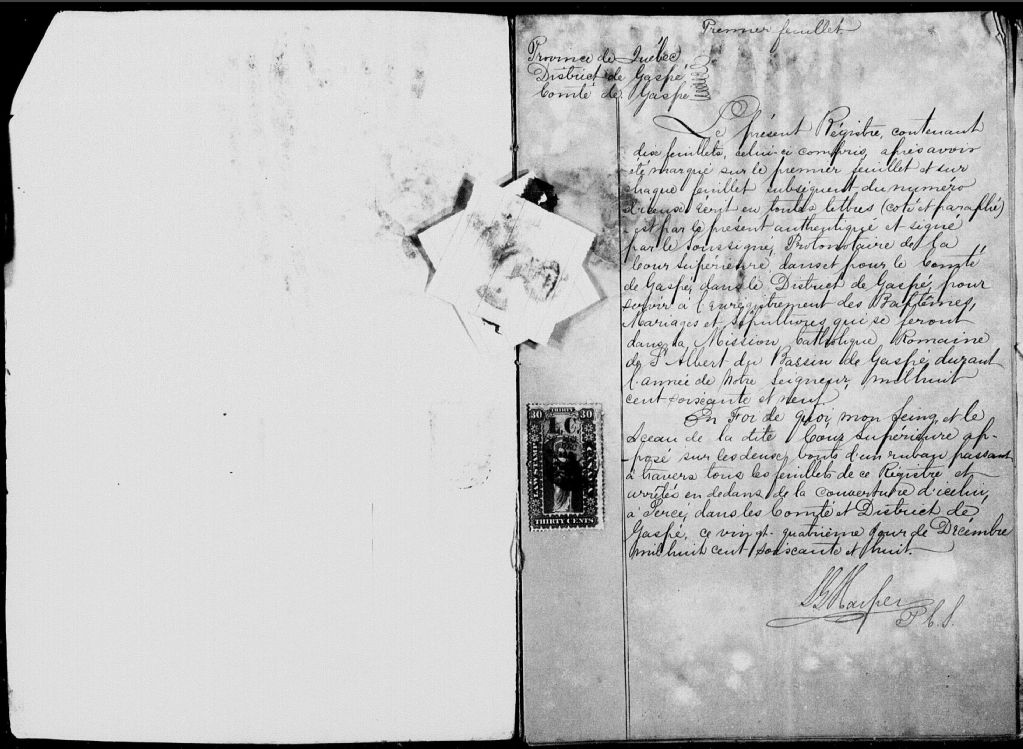 Premier feuillet
Province de Québec
District de Gaspé
Comté de Gaspé
Le présent Régistre, contenant
dix feuillets, celui-ci compris, après avoir
été marqué sur le premier feuillet et sur
chaque feuillet subséquent du numéro
d'iceux écrit en toutes lettres (coté et paraphé)
est par le présent authentiqué et signé
par le soussigné, Protonotaire de la
Cour Supérieure, dans et pour le Comté
de Gaspé, dans le District de Gaspé, pour
servir à l'enrégistrement des Baptêmes,
Mariages et Sépultures, qui se feront
dans la Mission Catholique Romaine
de St Albert du Bassin de Gaspé, durant
l'année de Notre Seigneur, mil huit
cent soixante et neuf.
En Foi de quoi, mon seing et le
Sceau de la dite Cour Supérieure ap-
-posé sur les deux bouts d'un ruban passant
à travers tous les feuillets de ce Régistre et
arrêtés en dedans de la couverture d'icelui,
à Percé, dans les Comté et District de
Gaspé, ce vingt-quatrième jour de Décembre
mil huit cent soixante et huit.
Harper
P.C.S.
30 THIRTY 30
L.C.
LAW STAMP
CANADA
THIRTY CENTS